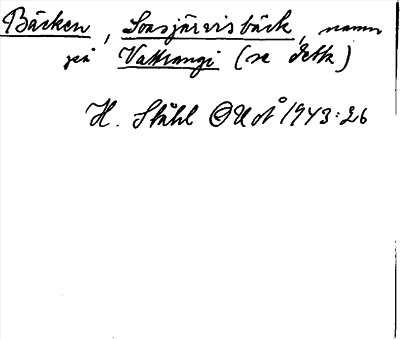 Bäcken, Soasjärvisbäck, namn
på Vattrangi (se detta)
H. Ståhl OUÅ 1943:26